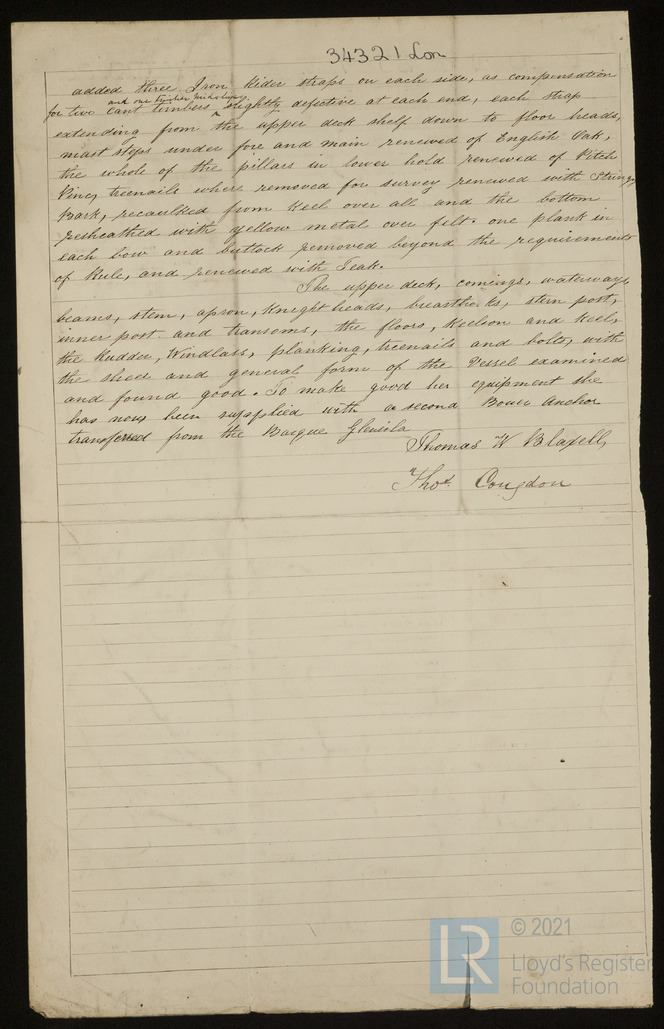 34321 Lon
added three Iron Rider straps on each side, as compensation
and one timber midships
for two cant timbers ^ slightly defective at each end, each strap
extending from the upper deck shelf down to floor heads,
mast steps under fore and main renewed of English Oak,
the whole of the pillars in lower hold renewed of Pitch
Pine, treenails where removed for survey renewed with Stringy
Bark, recaulked from Keel over all and the bottom
resheathed with yellow metal over felt. one plank in
each bow and buttock removed beyond the requirements
of Rule, and renewed with Teak.
The upper deck, comings, waterways,
beams, stem, apron, Knight heads, breasthooks, stern post,
inner post and transoms, the floors, Keelson and Keel,
the Rudder, Windlass, planking, treenails and bolts, with
the sheer and general form of the Vessel examined
and found good. To make good her equipment she
has now been supplied with a second Bower Anchor
transferred from the Barque
Thomas W Blaxell,
Thos. Congdon
LR
© 2021
Lloyd's Register
Foundation